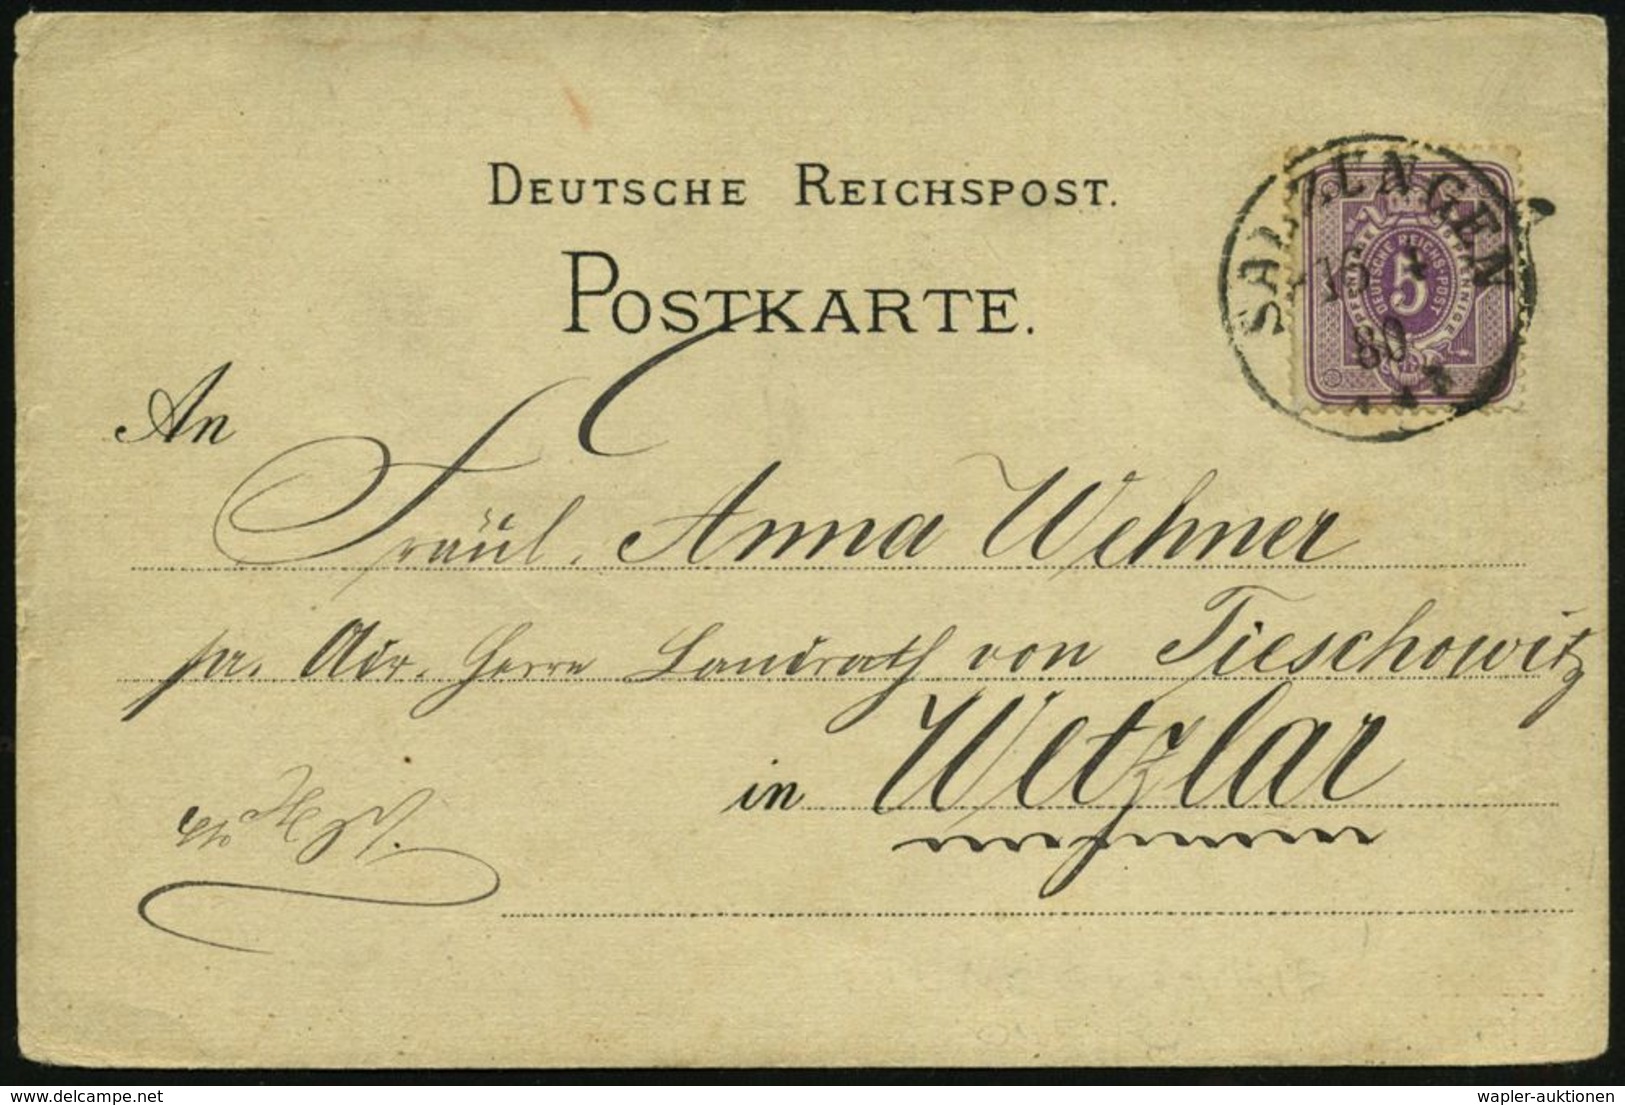 DEUTSCHE REICHSPOST.
POSTKARTE.
SALZUNGEN
10 4
80
5 PFENNIGE
DEUTSCHE REICHS-POST
5
An
Fräul. Anna Wehner
pr. Adr. Herrn Landrath von Tieschowitz
in Wetzlar
delcampe.net
wapler-auktionen